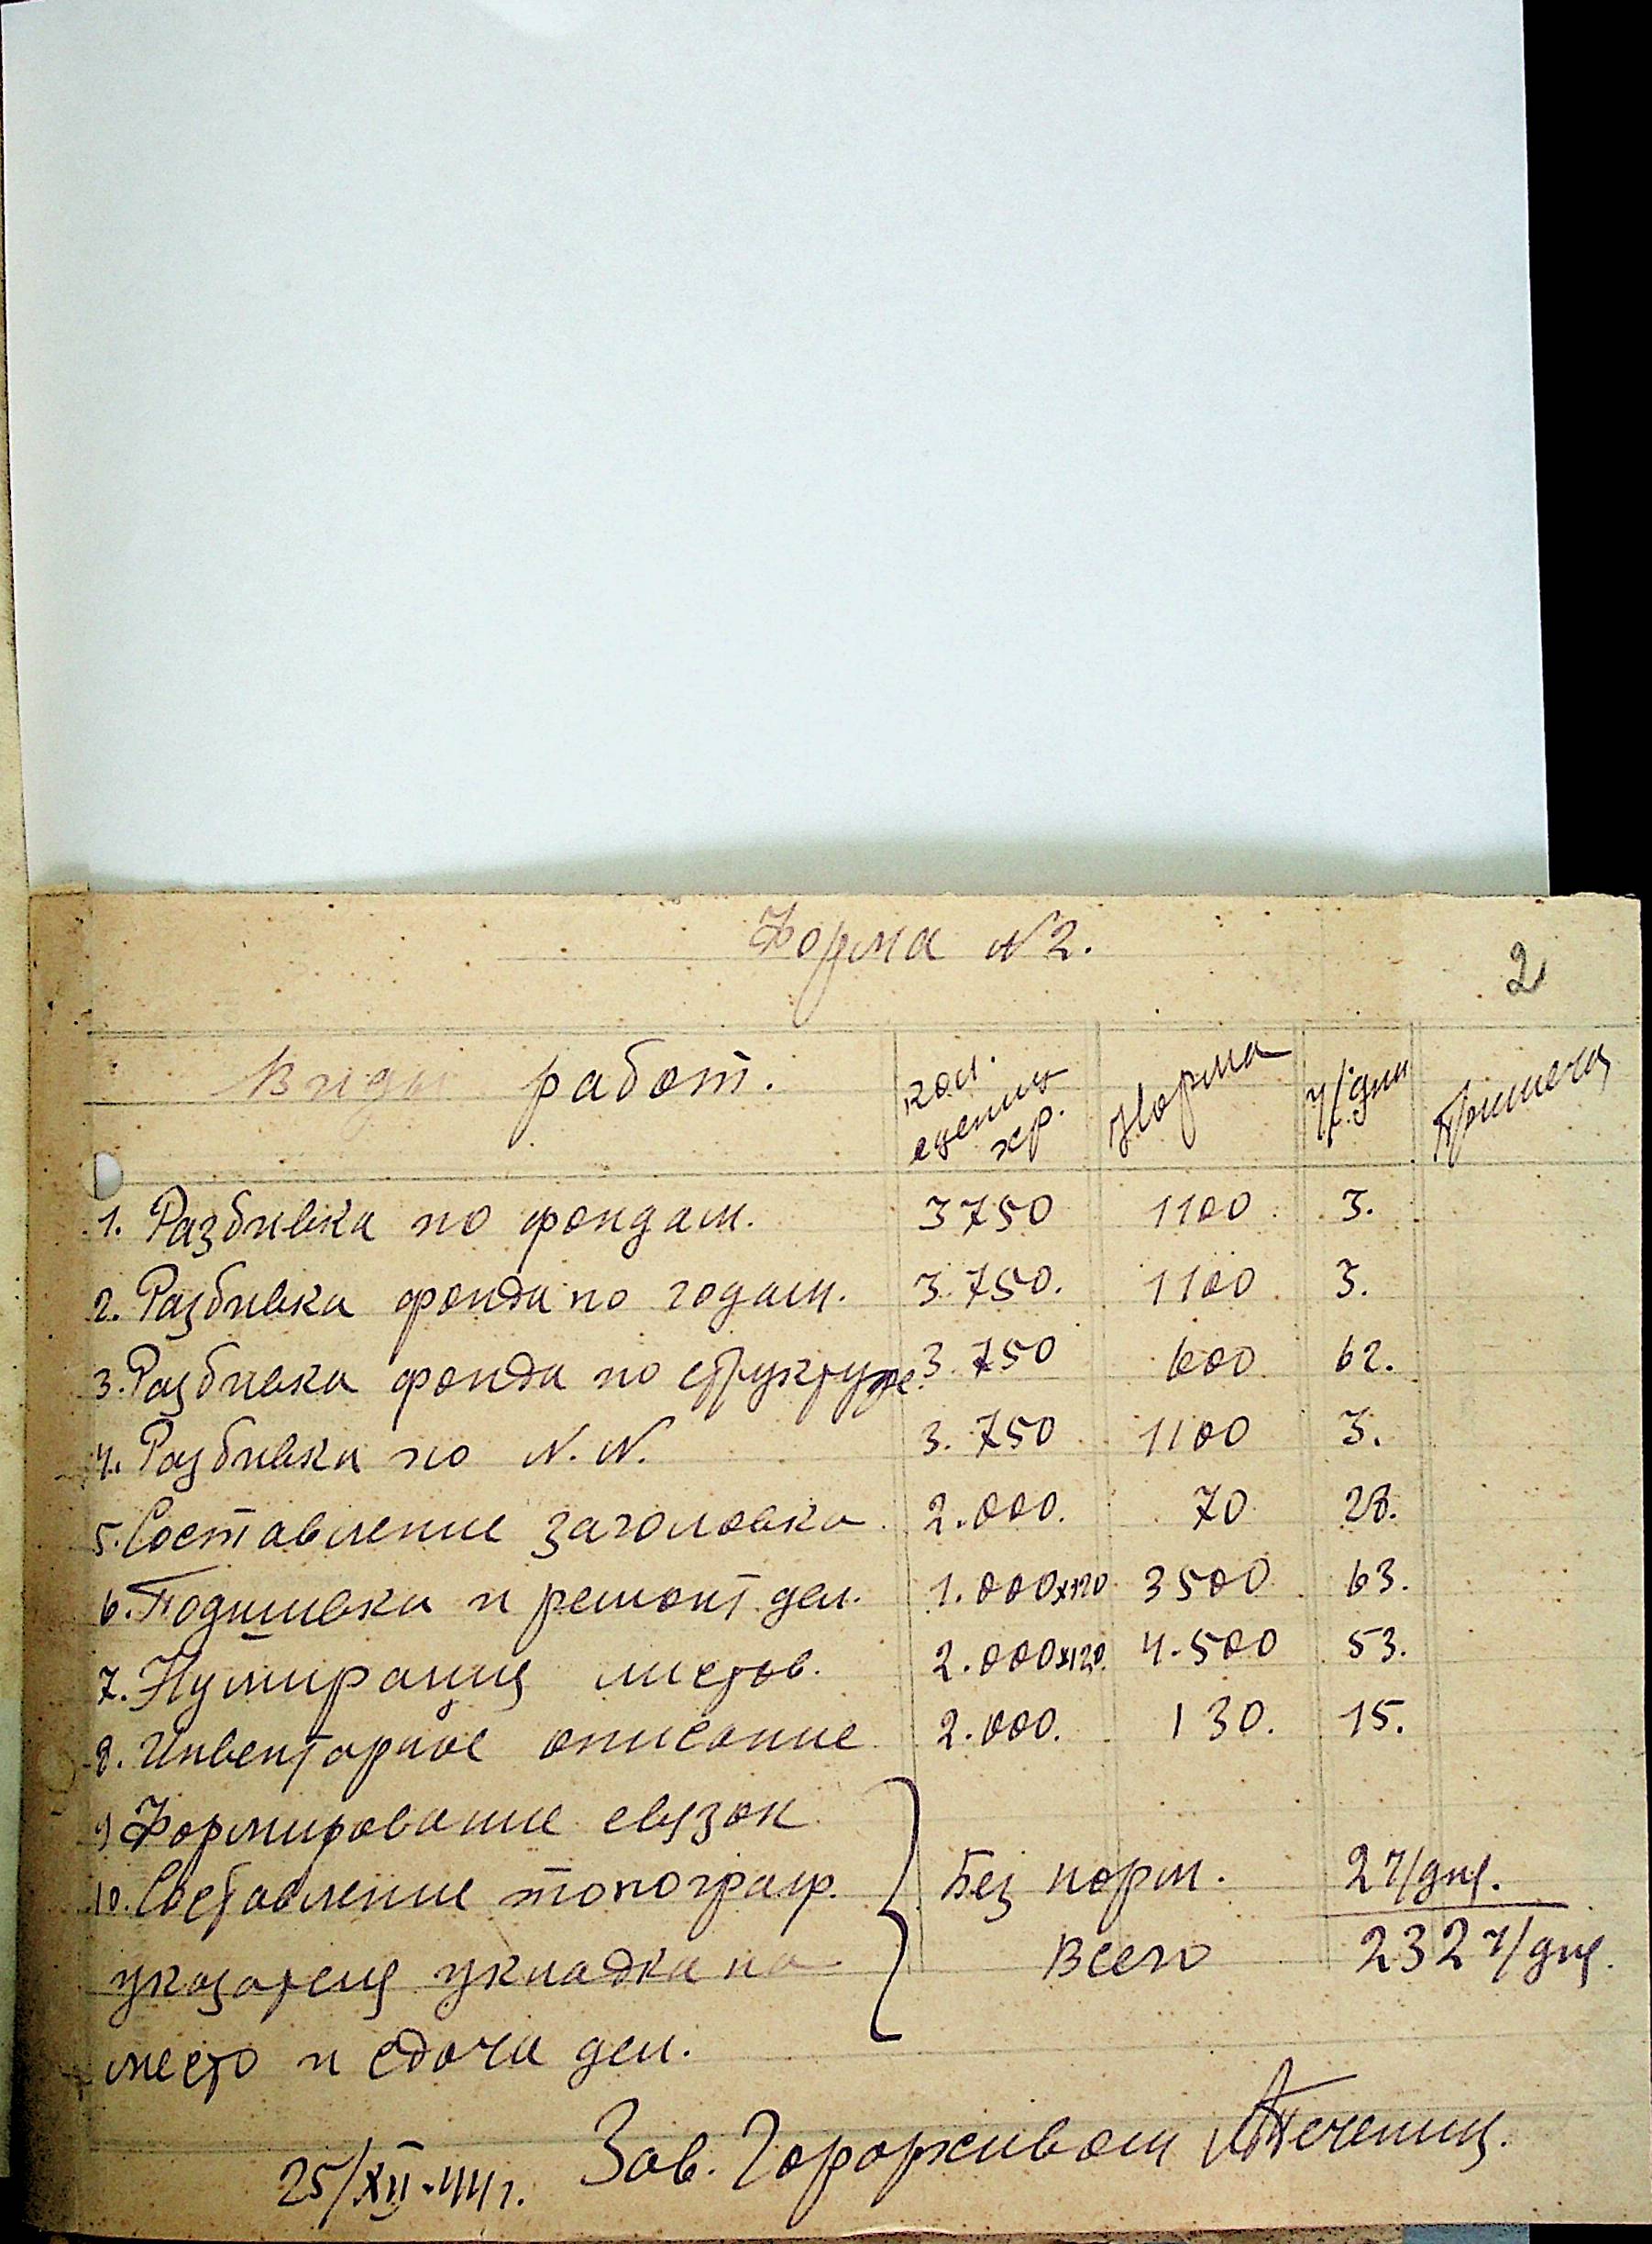 Форма N 2.
2
Виды работ.
кол. единиц хр.
Норма
ч/дни
Примечя
1. Разбивка по фондам. 3750 1100 3.
2. Разбивка фонда по годам. 3.750. 1100 3.
3. Разбивка фонда по структуре. 3.750 600 62.
4. Разбивка по N.N. 3.750 1100 3.
5. Составление заголовка 2.000. 70 28.
6. Подшивка и ремонт дел. 1.000х120 3500 63.
7. Нумирация листов. 2.000х120. 4.500 53.
8. Инвентарное описание 2.000. 130. 15.
9) Формирование связок
10. Составление топограф. Без норм. 2 ч/дня.
указателя укладка на Всего 232 ч/дня.
место и сдача дел.
25/XII-44 г. Зав. Горархивом